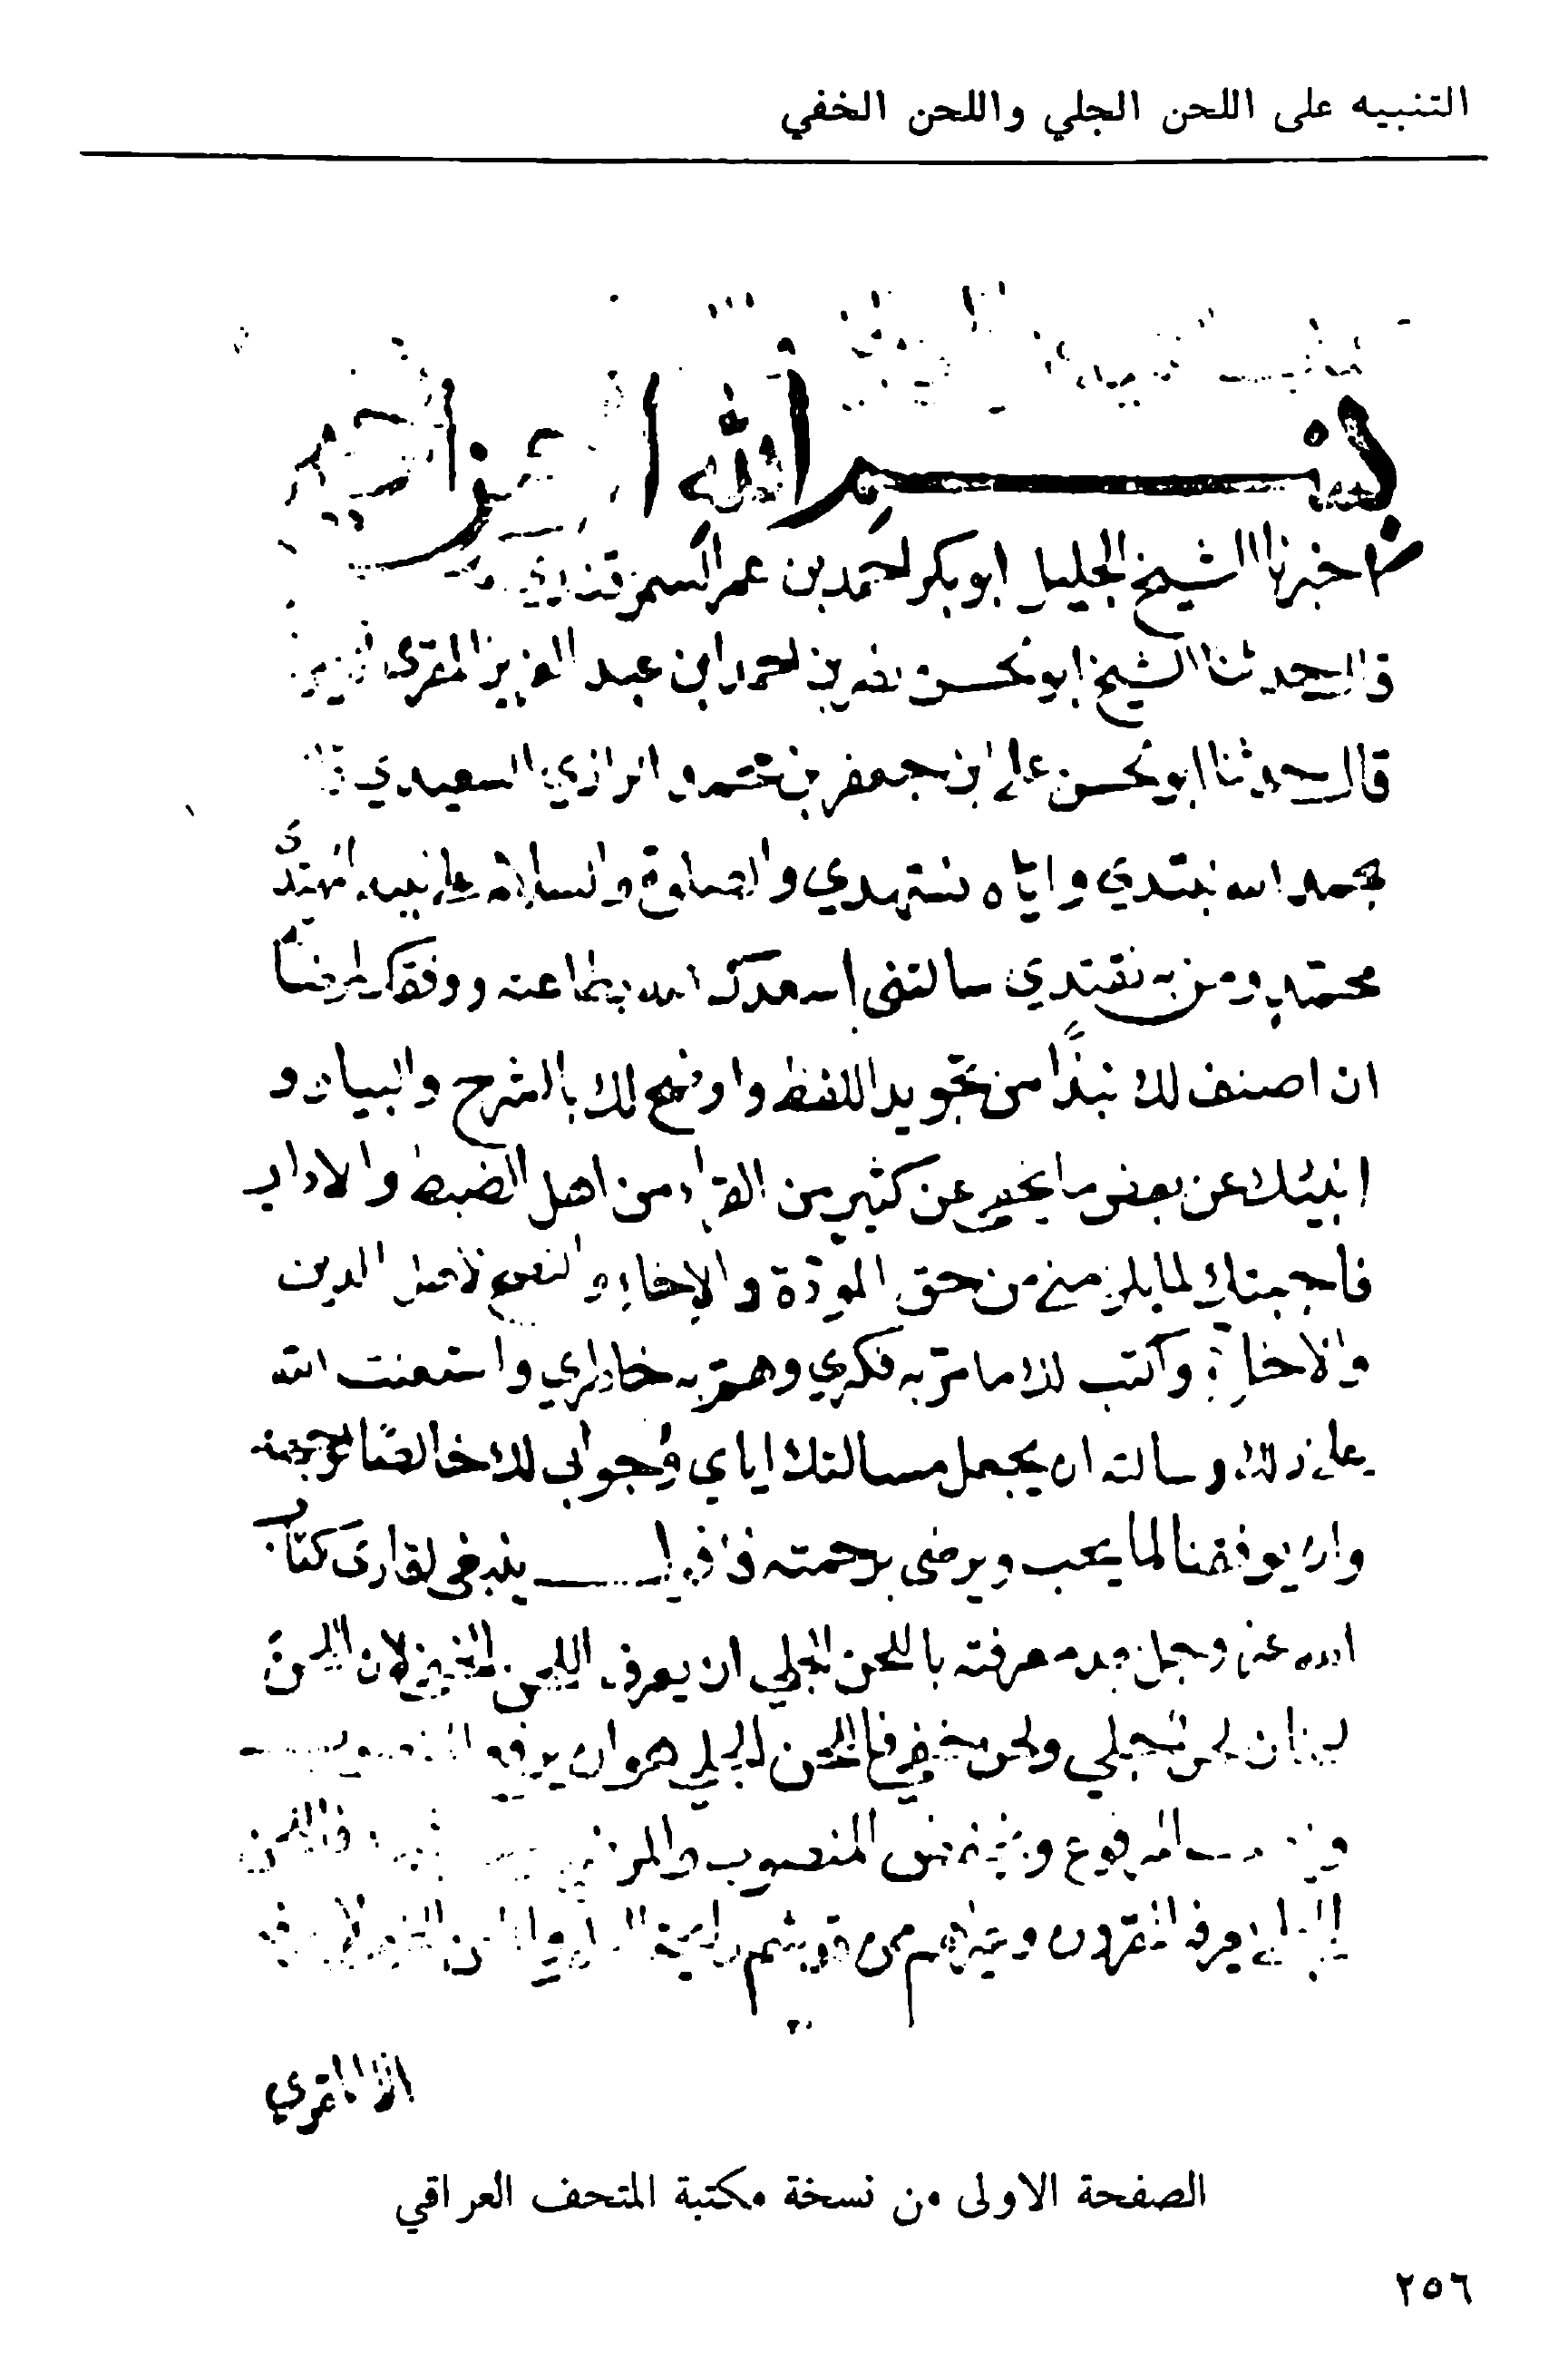 التنبيه على اللحن الجلي واللحن الخفي
بسم الله الرحمن الرحيم
اخبرنا الشيخ الجليل ابو بكر احمد بن عمر السمرقندي
قال حدثنا الشيخ ابو الحسن بن احمد ابن عبد العزيز المقرى
قال حدثنا ابو الحسن على ابن جعفر بن محمد الرازي السعيدي
بحمد الله نبتدي واياه نستهدي والصلوة والسلام على نبيه
محمد ومن به نقتدي سالتنى اسعدك الله بطاعته ووفقك لمرضا
ان اصنف لك نبذا من تجويد اللفظ واوضح لك بالشرح والبيان و
انبيئك عن بعض ما يخفى عن كثير من القراء من اهل الضبط والاداب
فاجبتك لما يلزمني من حق المودة والاخاء والنصح لاهل الدين
والاخا واكتب لك ما مر به فكري وهم به خاطري واستعنت الله
على ذلك وسالته ان يجعل مسالتك اياي وجوابي لك خالصا لوجهه
وان يوفقنا لما يحب ويرضى برحمته ينبغى لقارئ كتاب
الله عز وجل بعد معرفته باللحن الجلي ان يعرف اللحن الخفي لان اللحن
لحنان لحن جلي ولحن خفي فاللحن الجلي هو ان يرفع المنصوب
المرفوع المنصوب والمرفوع فاللحن
الجلي يعرفه المقرون وغيرهم ممن قد شم رايحة
المقري
الصفحة الاولى من نسخة مكتبة المتحف العراقي
٢٥٦